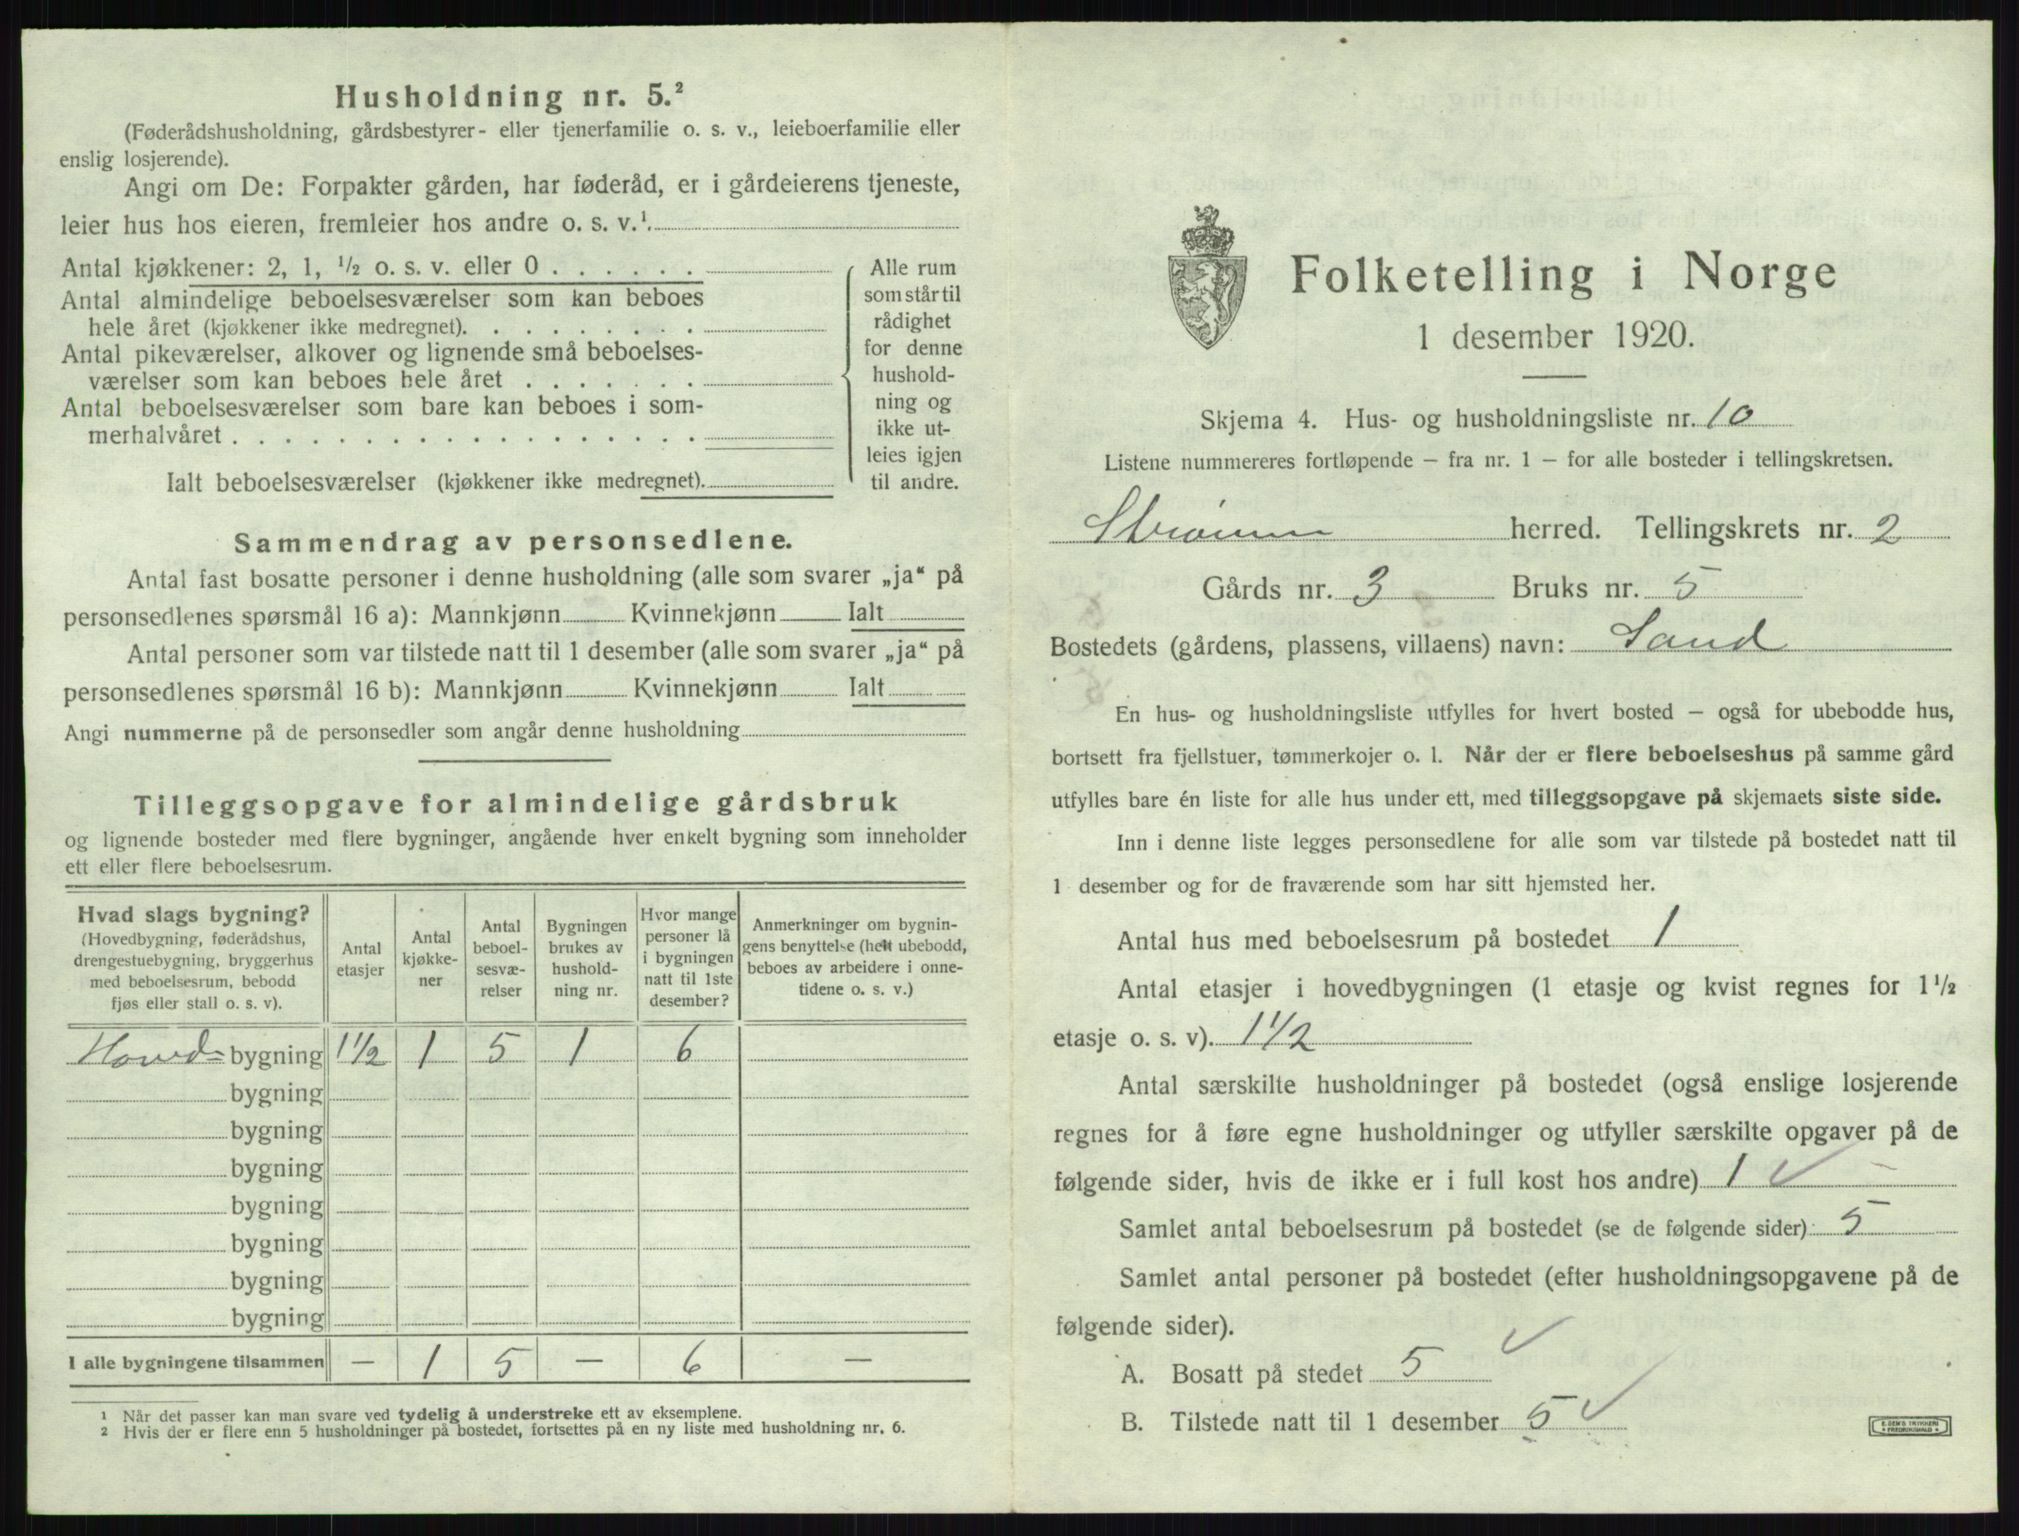 Husholdning nr. 5.²
(Føderådshusholdning, gårdsbestyrer- eller tjenerfamilie o. s. v., leieboerfamilie eller
enslig losjerende).
Angi om De: Forpakter gården, har føderåd, er i gårdeierens tjeneste,
leier hus hos eieren, fremleier hos andre o. s. v.¹.
Antal kjøkkener: 2, 1, ½ o. s. v. eller 0 . . . . . .
Antal almindelige beboelsesværelser som kan beboes
hele året (kjøkkener ikke medregnet). . . . . . . . .
Antal pikeværelser, alkover og lignende små beboelses-
værelser som kan beboes hele året . . . . . . .
Antal beboelsesværelser som bare kan beboes i som-
merhalvåret . . . . . . . . . . . . . . . . . .
Ialt beboelsesværelser (kjøkkener ikke medregnet).
Alle rum
som står til
rådighet
for denne
hushold-
ning og
ikke ut-
leies igjen
til andre.
Sammendrag av personsedlene.
Antal fast bosatte personer i denne husholdning (alle som svarer „ja“ på
personsedlenes spørsmål 16 a): Mannkjønn Kvinnekjønn Ialt
Antal personer som var tilstede natt til 1 desember (alle som svarer „ja“ på
personsedlenes spørsmål 16 b): Mannkjønn Kvinnekjønn Ialt
Angi nummerne på de personsedler som angår denne husholdning
Tilleggsopgave for almindelige gårdsbruk
og lignende bosteder med flere bygninger, angående hver enkelt bygning som inneholder
ett eller flere beboelsesrum.
Hvad slags bygning?
(Hovedbygning, føderådshus,
drengestuebygning, bryggerhus
med beboelsesrum, bebodd
fjøs eller stall o. s. v).
Antal
etasjer
Antal
kjøkke-
ner
Antal
beboel-
sesvæ-
relser
Bygningen
brukes av
hushold-
ning nr.
Hvor mange
personer lå
i bygningen
natt til 1ste
desember?
Anmerkninger om bygnin-
gens benyttelse (helt ubebodd,
beboes av arbeidere i onne-
tidene o. s. v.)
Hoved- bygning 1½ 1 5 1 6
bygning
bygning
bygning
bygning
bygning
bygning
bygning
I alle bygningene tilsammen — 1 5 — 6 —
¹ Når det passer kan man svare ved tydelig å understreke ett av eksemplene.
² Hvis der er flere enn 5 husholdninger på bostedet, fortsettes på en ny liste med husholdning nr. 6.
Folketelling i Norge
1 desember 1920.
Skjema 4. Hus- og husholdningsliste nr. 10
Listene nummereres fortløpende — fra nr. 1 — for alle bosteder i tellingskretsen.
Strømm herred. Tellingskrets nr. 2
Gårds nr. 3 Bruks nr. 5
Bostedets (gårdens, plassens, villaens) navn: Sand
En hus- og husholdningsliste utfylles for hvert bosted — også for ubebodde hus,
bortsett fra fjellstuer, tømmerkojer o. l. Når der er flere beboelseshus på samme gård
utfylles bare én liste for alle hus under ett, med tilleggsopgave på skjemaets siste side.
Inn i denne liste legges personsedlene for alle som var tilstede på bostedet natt til
1 desember og for de fraværende som har sitt hjemsted her.
Antal hus med beboelsesrum på bostedet 1
Antal etasjer i hovedbygningen (1 etasje og kvist regnes for 1½
etasje o. s. v). 1½
Antal særskilte husholdninger på bostedet (også enslige losjerende
regnes for å føre egne husholdninger og utfyller særskilte opgaver på de
følgende sider, hvis de ikke er i full kost hos andre) 1 ✓
Samlet antal beboelsesrum på bostedet (se de følgende sider) 5
Samlet antal personer på bostedet (efter husholdningsopgavene på de
følgende sider).
A. Bosatt på stedet 5 ✓
B. Tilstede natt til 1 desember 5 ✓